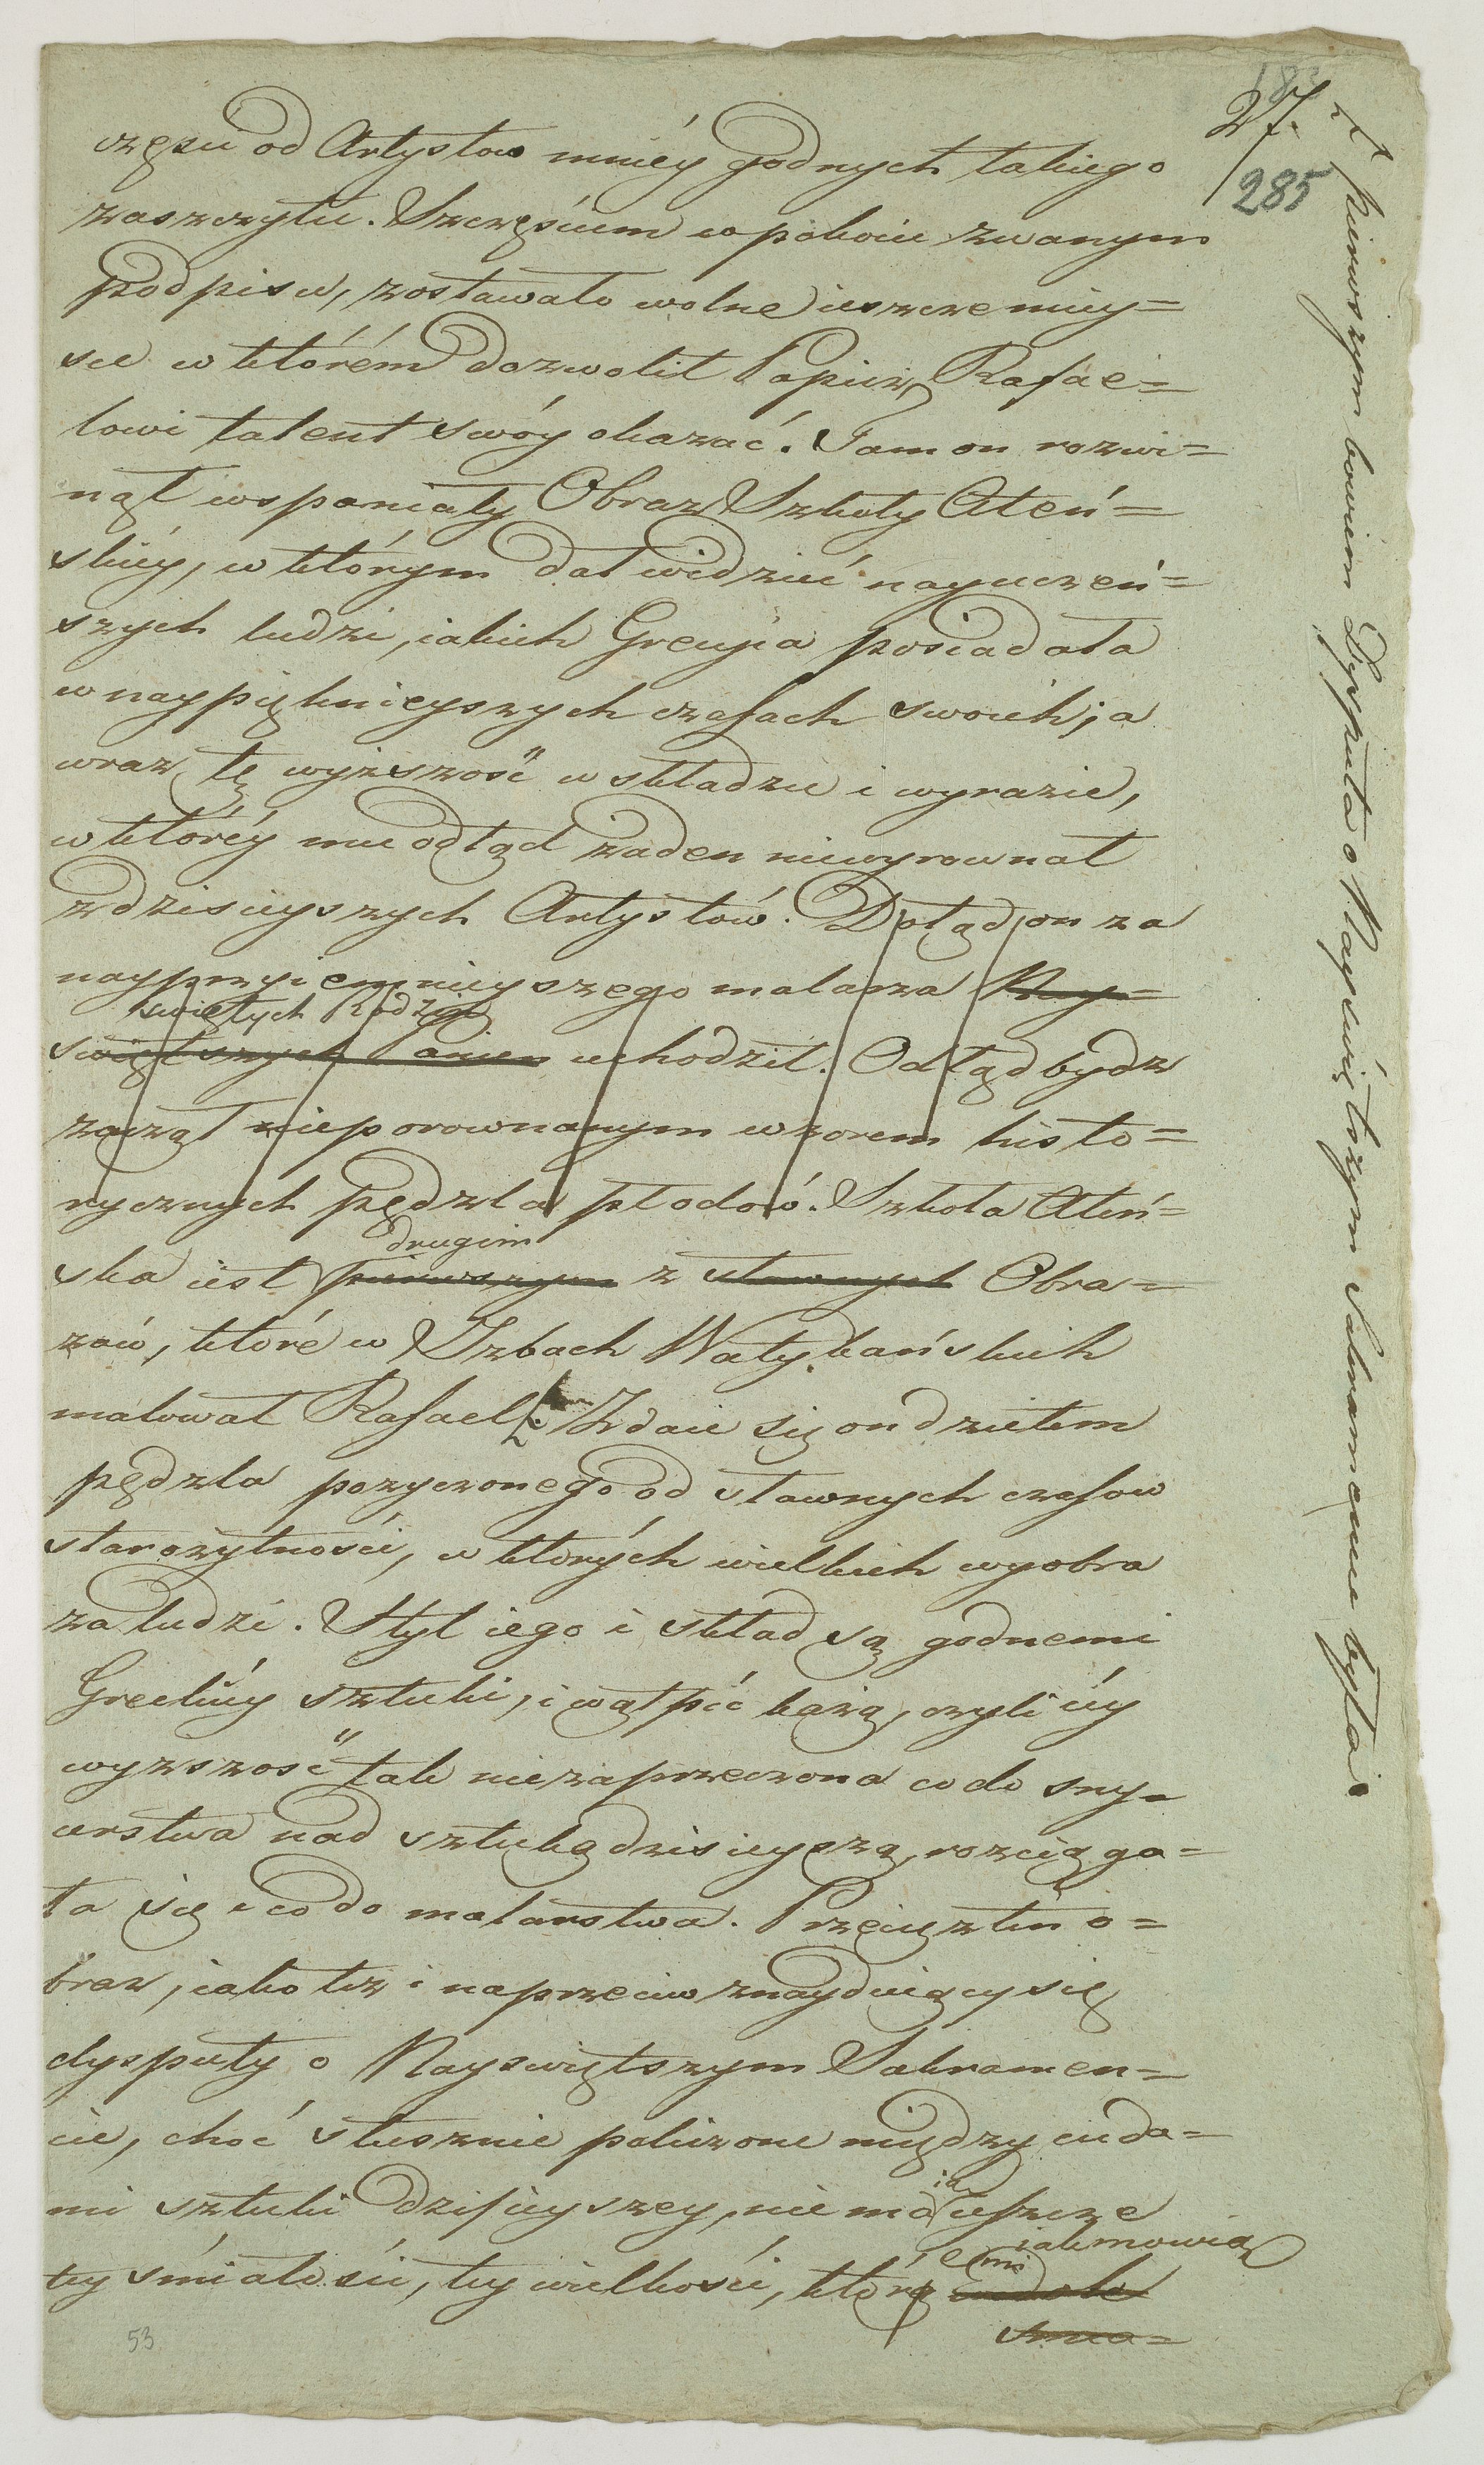 183
27.
285
części od Artystow mniéy godnych takiego
zaszczytu. Szczęściem w pokoiu zwanym
Podpisu, zostawało wolne ieszcze miey=
sce w którém dozwolił Papież Rafae=
lowi talent swóy okazać. Tam on rozwi=
nął wspaniały Obraz Szkoły Ateń=
skiéy, w którym dał widzieć nayuczeń=
szych ludzi, iakich Grecyia posiadała
w naypięknieyszych czasach swoich; a
wraz tę wyższość w składzie i wyrazie,
w któréy mu odtąd żaden niewyrownał
z dzisieyszych Artystów. Dotąd on za
nayprzyiemnieyszego malarza Nay=
swiętych Rodzin
swiętszych Panien uchodził. Odtąd bydz
zaczął nieporownanym wzorem histo=
rycznych pędzla płodów. Szkoła Ateń=
drugim
ska iest pierwszym z sławnych Obra=
zów, któré w Izbach Watykańskich
malował Rafael. Zdaie się on dziełem
pędzla pożyczonego od sławnych czasow
starożytności, w których wielkich wyobra
za ludzi. Styl iego i skład są godnemi
Greckiéy sztuki, i wątpić każą, czyli iéy
wyższość tak niezaprzeczona co do sny=
cerstwa nad sztuką dzisieyszą, rozciąga=
ła się i co do malarstwa. Przecięż ten o=
braz, iako też i naprzeciw znayduiący się
dysputy o Nayswiętszym Sakramen=
cie, choć słusznie policzone między cuda=
mi sztuki dzisieyszey, nie maią ieszcze
iak mowią
tey śmiałości, tey wielkości, któremi
z pierwszym bowiem Dysputa o Nayswiętszym Sakramencie była.
53